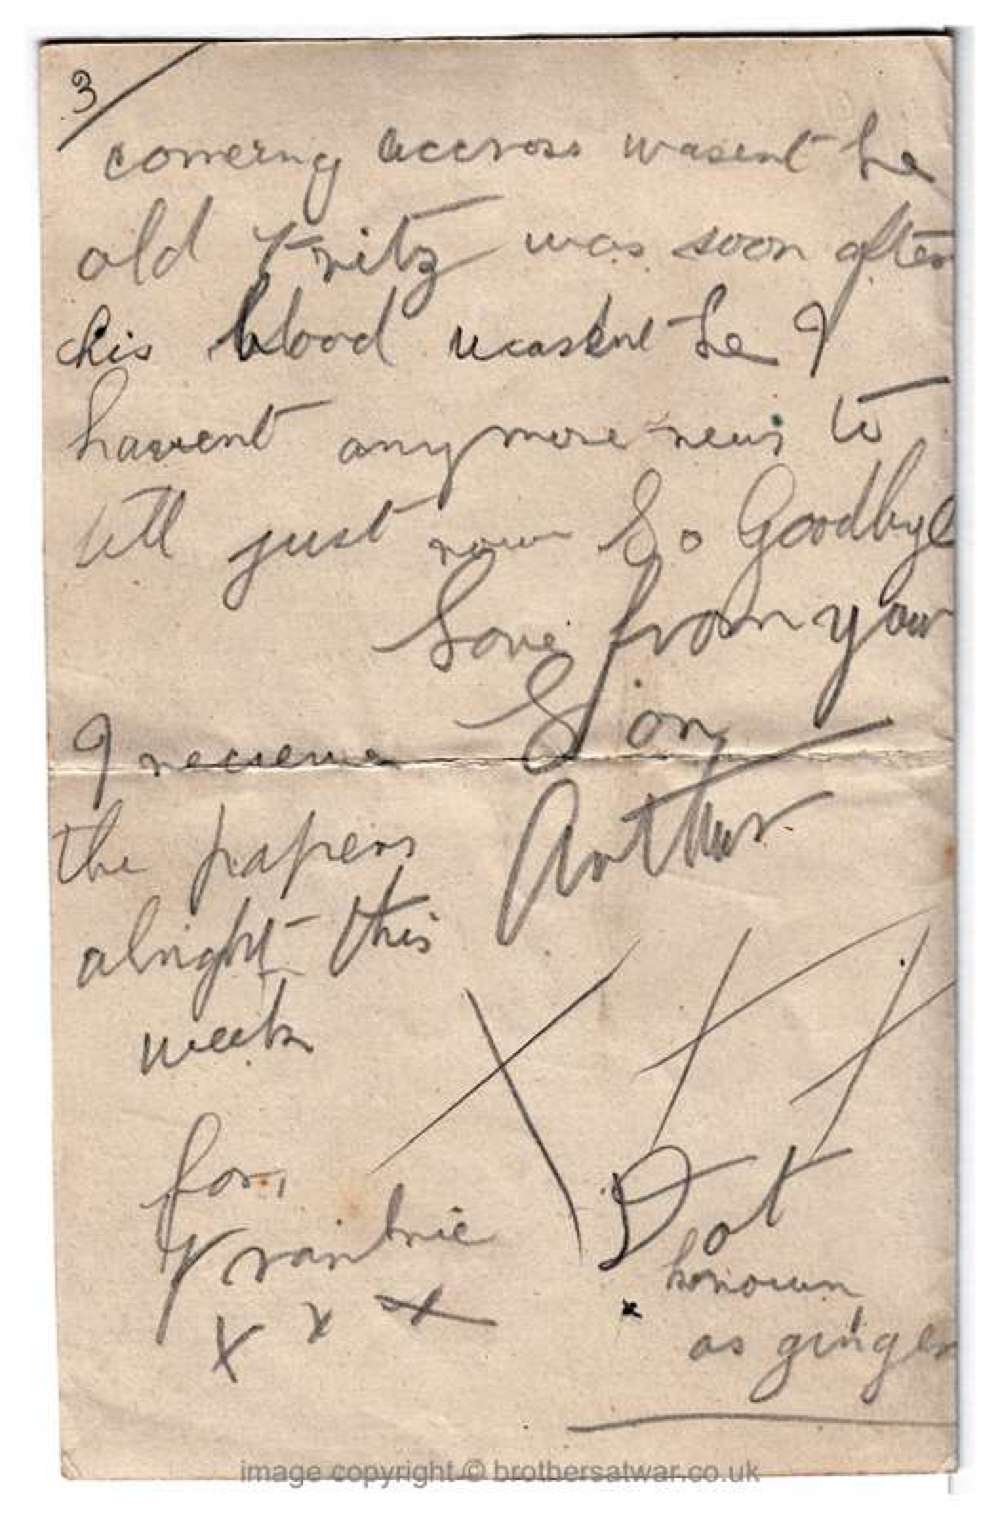 3
comeing accross wasent he
old Fritz was soon after
his blood wasent he I
havent any more news to
tell just now So Goodbye
Love from your
Son
Arthur
I receieve
the papers
alright this
week
X X X
for,
Frankie
x x x
Dot
known
as ginger
image copyright © brothersatwar.co.uk